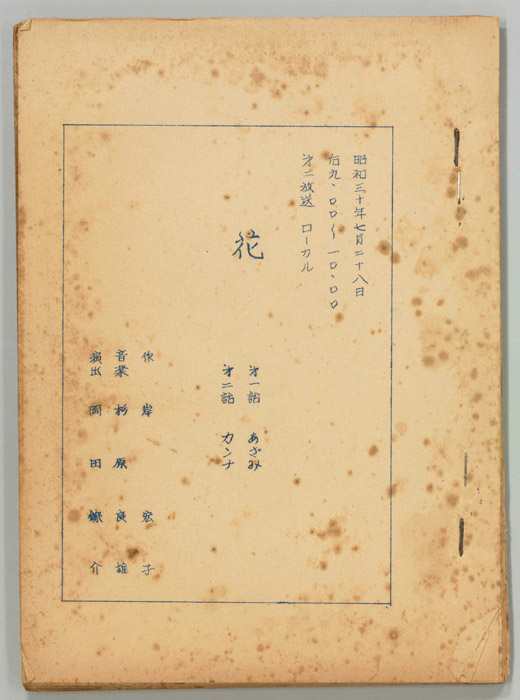 昭和三十年七月二十八日
后九、〇〇〜一〇、〇〇
第二放送 ローカル
花
第一話 あざみ
第二話 カンナ
作 岸 宏子
音楽 杉原良雄
演出 岡田 介